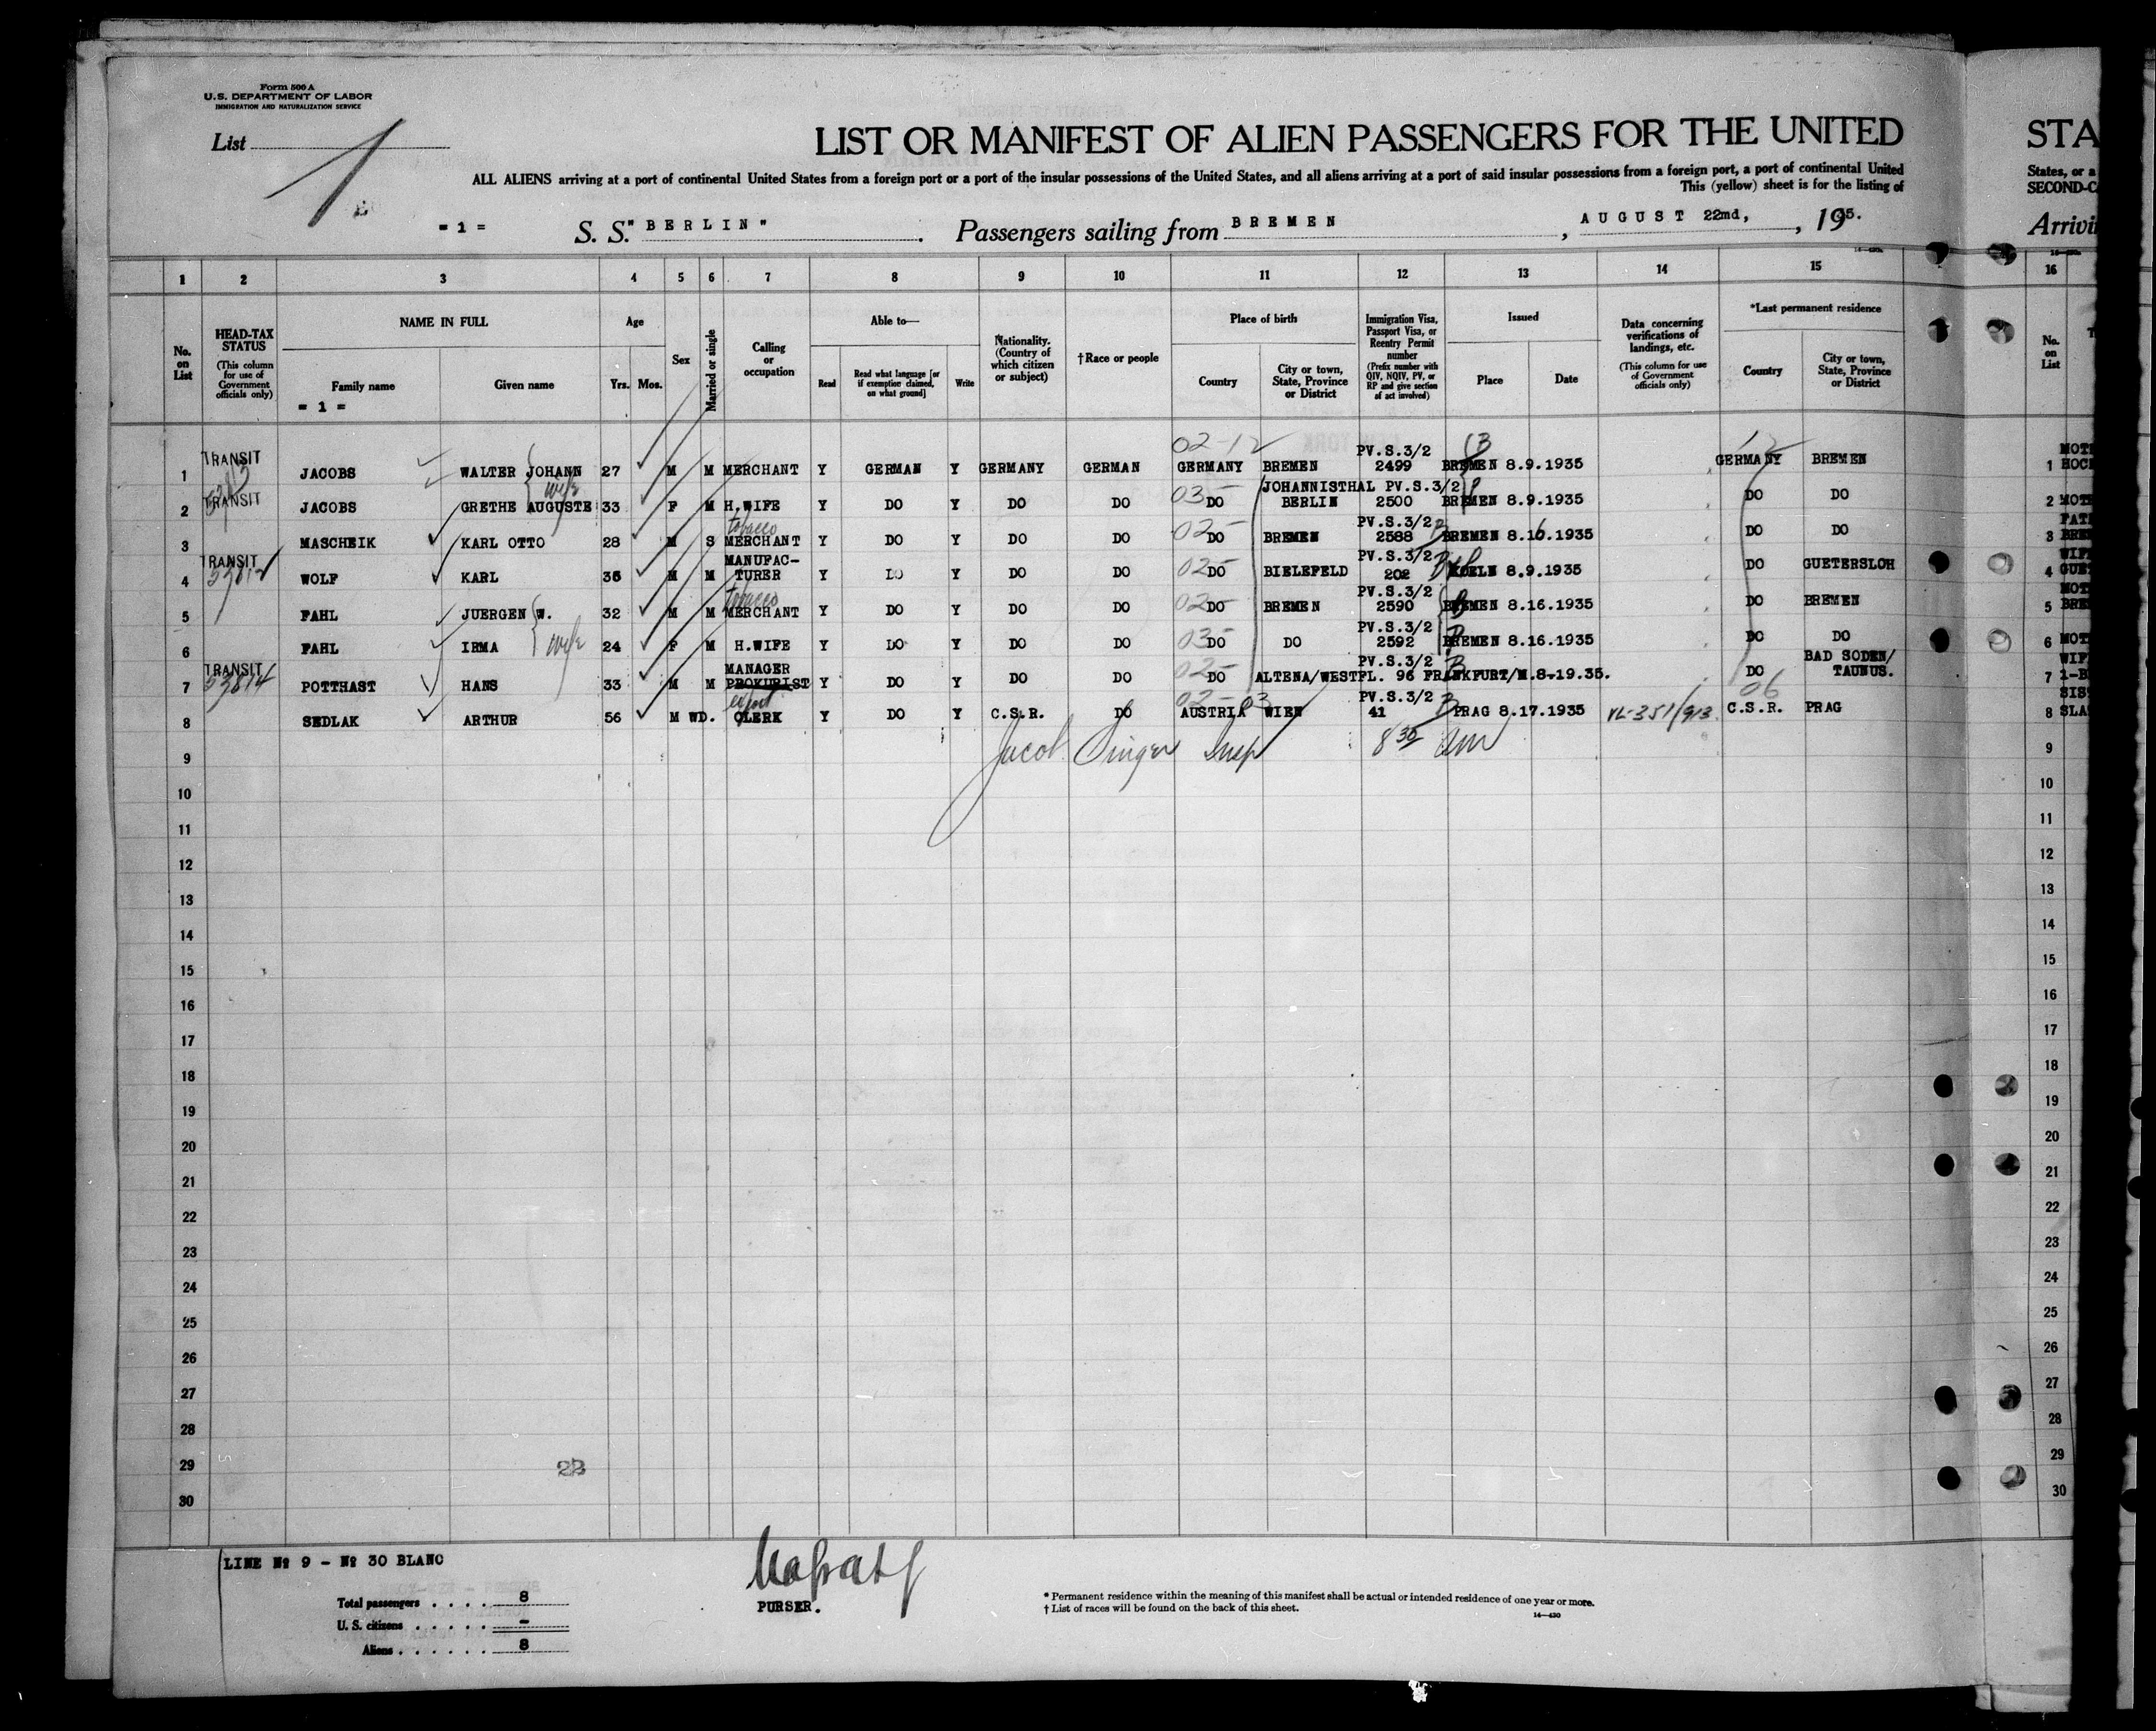 Form 500 A
U. S. DEPARTMENT OF LABOR
IMMIGRATION AND NATURALIZATION SERVICE
List 1
LIST OR MANIFEST OF ALIEN PASSENGERS FOR THE UNITED STA
ALL ALIENS arriving at a port of continental United States from a foreign port or a port of the insular possessions of the United States, and all aliens arriving at a port of said insular possessions from a foreign port, a port of continental United States, or a
This (yellow) sheet is for the listing of SECOND-C
= 1 = S. S. "BERLIN". Passengers sailing from BREMEN, AUGUST 22md, , 1935. Arrivi
1 2 3 4 5 6 7 8 9 10 11 12 13 14 15 16
No. on List
HEAD-TAX STATUS
(This column for use of Government officials only)
NAME IN FULL
Family name Given name
= 1 =
Age
Yrs. Mos.
Sex
Married or single
Calling or occupation
Able to—
Read Read what language [or if exemption claimed, on what ground] Write
Nationality. (Country of which citizen or subject)
†Race or people
Place of birth
Country City or town, State, Province or District
Immigration Visa, Passport Visa, or Reentry Permit number
(Prefix number with QIV, NQIV, PV, or RP and give section of act involved)
Issued
Place Date
Data concerning verifications of landings, etc.
(This column for use of Government officials only)
*Last permanent residence
Country City or town, State, Province or District
No. on List
1 TRANSIT JACOBS WALTER JOHANN 27 M M MERCHANT Y GERMAN Y GERMANY GERMAN 02-12 GERMANY BREMEN PV.S.3/2 2499 BREMEN 8.9.1935 GERMANY BREMEN 1
2 TRANSIT JACOBS GRETHE AUGUSTE wife 33 F M H.WIFE Y DO Y DO DO 03- DO JOHANNISTHAL BERLIN PV.S.3/2 2500 BREMEN 8.9.1935 DO DO 2
3 MASCHEIK KARL OTTO 28 M S tobacco MERCHANT Y DO Y DO DO 02- DO BREMEN PV.S.3/2 2588 BREMEN 8.16.1935 DO DO 3
4 TRANSIT WOLF KARL 36 M M MANUFAC-TURER Y DO Y DO DO 02- DO BIELEFELD PV.S.3/2 202 KOELN 8.9.1935 DO GUETERSLOH 4
5 FAHL JUERGEN W. 32 M M tobacco MERCHANT Y DO Y DO DO 02- DO BREMEN PV.S.3/2 2590 BREMEN 8.16.1935 DO BREMEN 5
6 FAHL IRMA wife 24 F M H.WIFE Y DO Y DO DO 03- DO DO PV.S.3/2 2592 BREMEN 8.16.1935 DO DO 6
7 TRANSIT 53814 POTTHAST HANS 33 M M MANAGER PROKURIST Y DO Y DO DO 02- DO ALTENA/WESTFL. PV.S.3/2 96 FRANKFURT/M.8-19.35. DO BAD SODEN/TAUNUS. 7
8 SEDLAK ARTHUR 56 M WD. export CLERK Y DO Y C.S.R. DO 02-03 AUSTRIA WIEN PV.S.3/2 41 PRAG 8.17.1935 VL-351/913 06 C.S.R. PRAG 8
Jacob Singer Insp 8 30 am
9 9
10 10
11 11
12 12
13 13
14 14
15 15
16 16
17 17
18 18
19 19
20 20
21 21
22 22
23 23
24 24
25 25
26 26
27 27
28 28
29 29
30 30
LINE № 9 - № 30 BLANC
Total passengers . . . . 8
U. S. citizens . . . . . . -
Aliens . . . . . . 8
PURSER.
* Permanent residence within the meaning of this manifest shall be actual or intended residence of one year or more.
† List of races will be found on the back of this sheet.
14—430